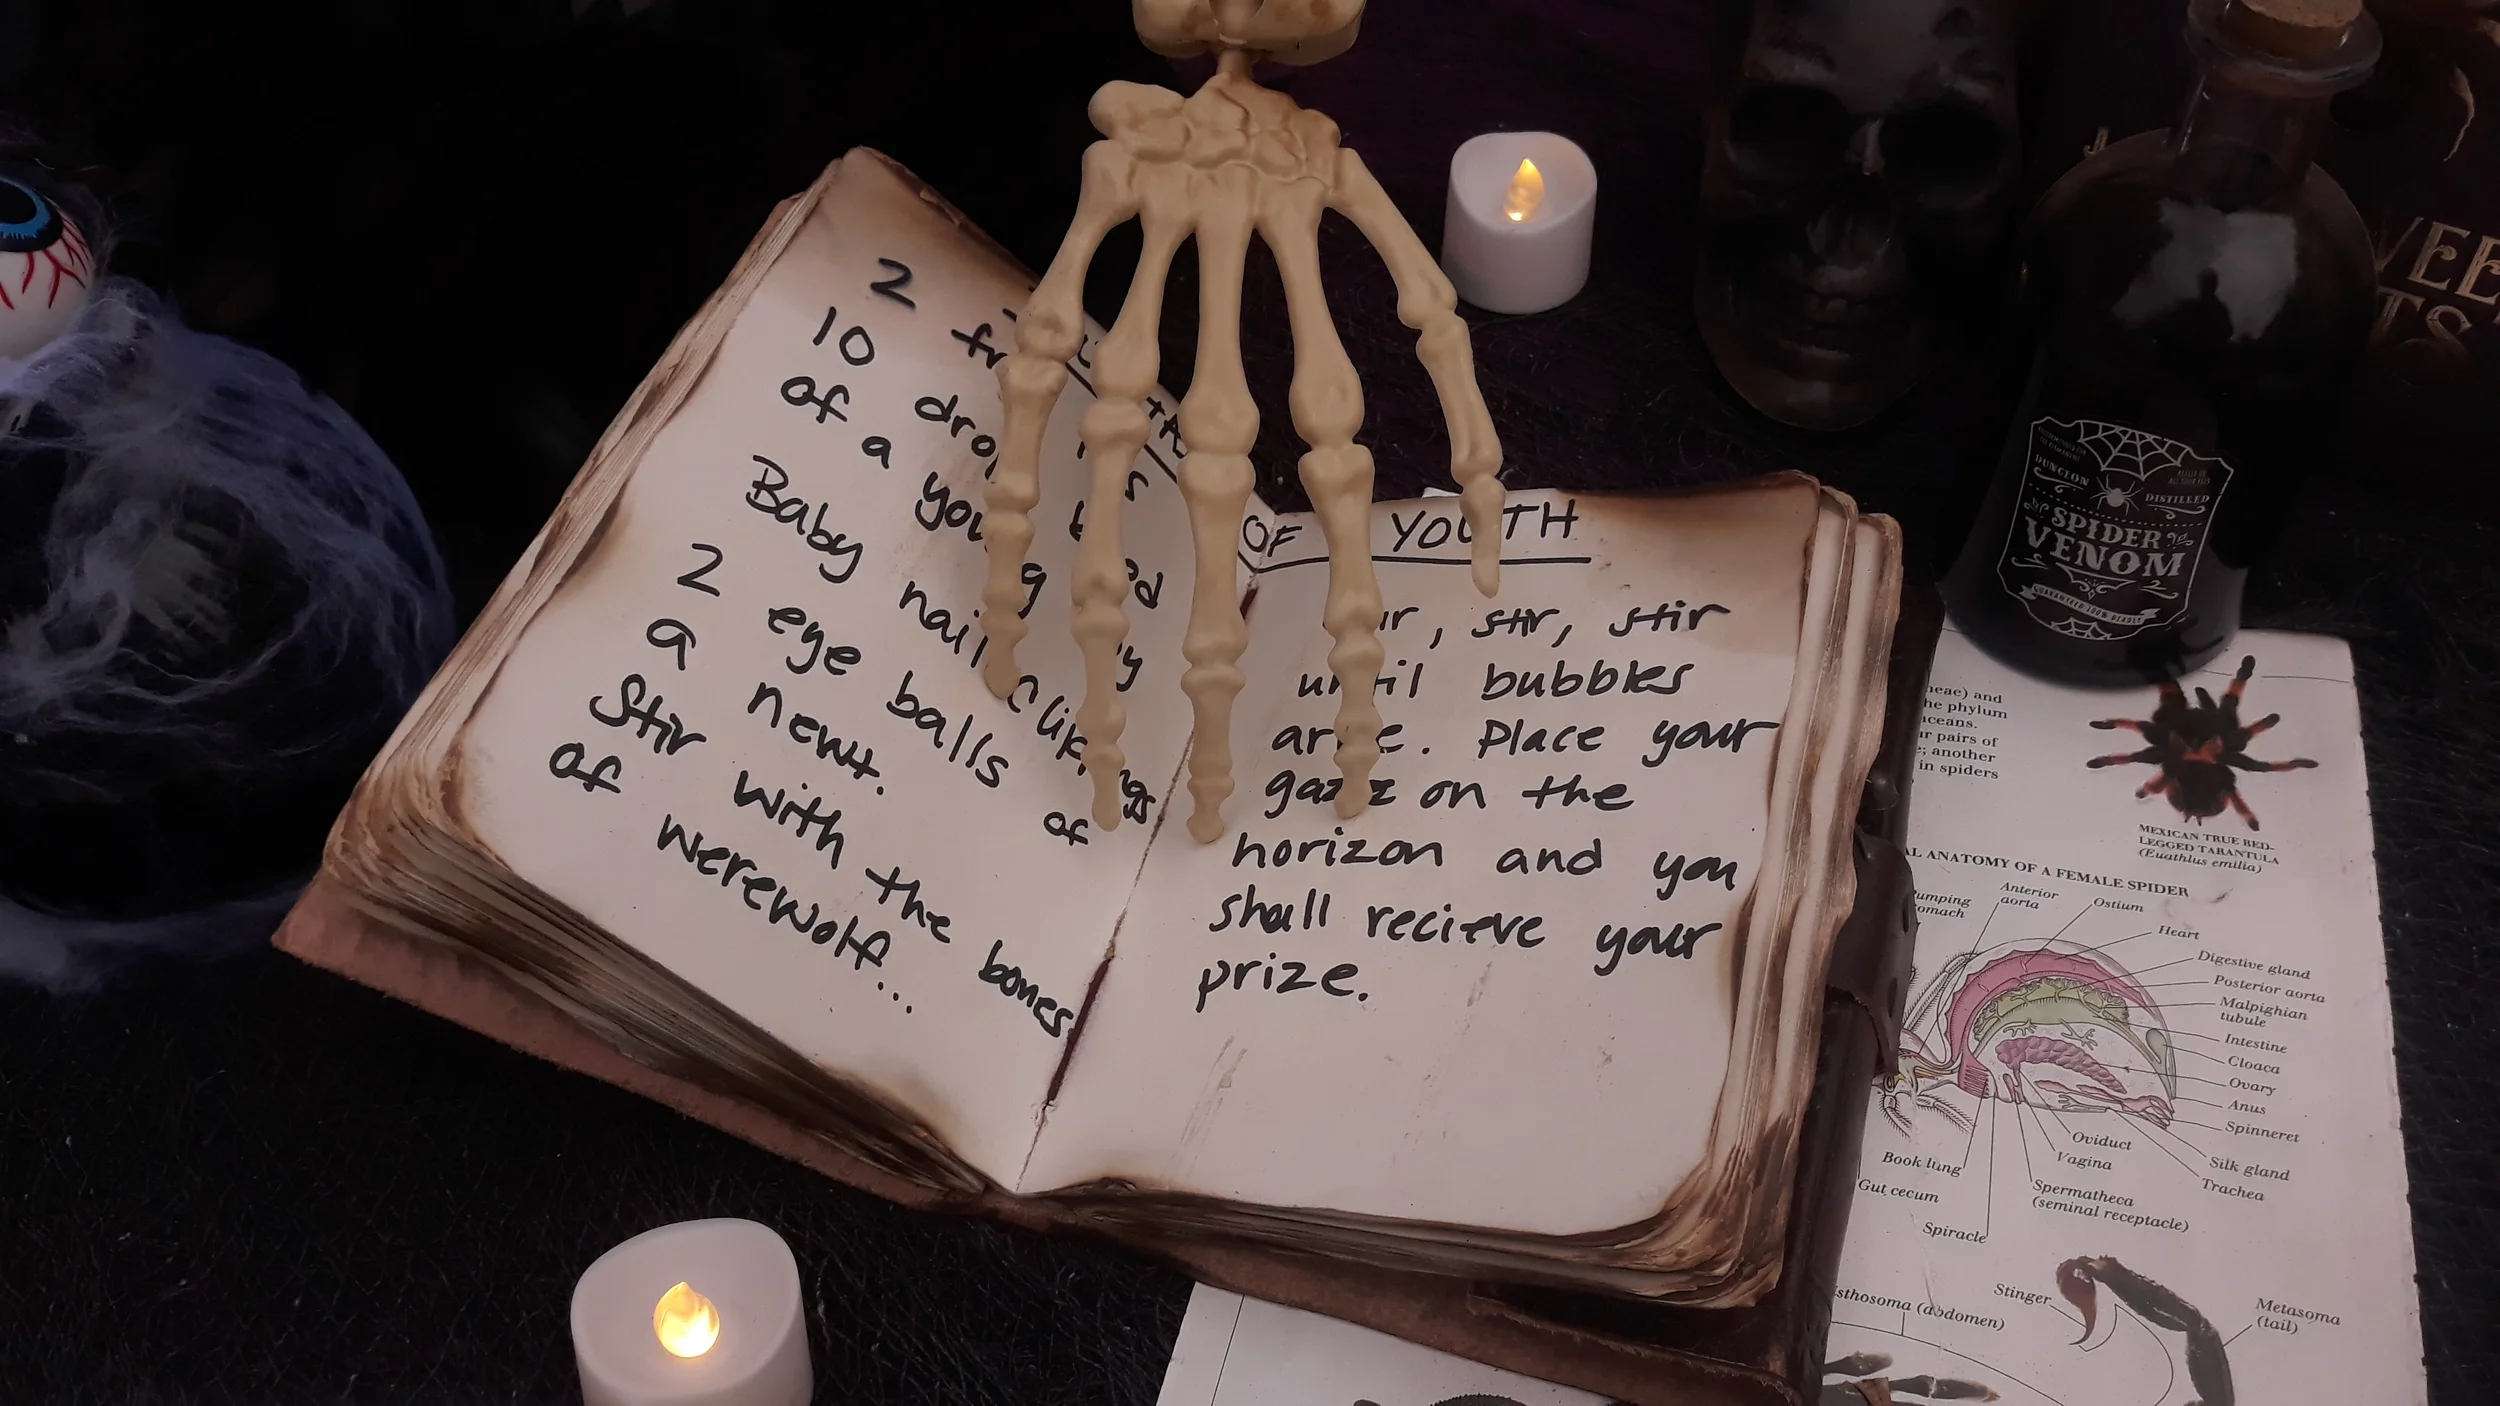 2 
10 drops
of a young
Baby nail clippings
2 eye balls of
a newt.
Stir with the bones
of werewolf...
OF YOUTH
stir, stir
until bubbles
arise. Place your
gaze on the
horizon and you
shall recieve your
prize.
DUNGEON
DISTILLED
SPIDER
VENOM
GUARANTEED 100% DEADLY
eae) and
he phylum
ceans.
r pairs of
; another
in spiders
MEXICAN TRUE RED-
LEGGED TARANTULA
(Euathlus emilia)
AL ANATOMY OF A FEMALE SPIDER
umping
omach
Anterior
aorta
Ostium
Heart
Digestive gland
Posterior aorta
Malpighian
tubule
Intestine
Cloaca
Ovary
Anus
Spinneret
Silk gland
Trachea
Oviduct
Vagina
Spermatheca
(seminal receptacle)
Book lung
Gut cecum
Spiracle
isthosoma (abdomen)
Stinger
Metasoma
(tail)